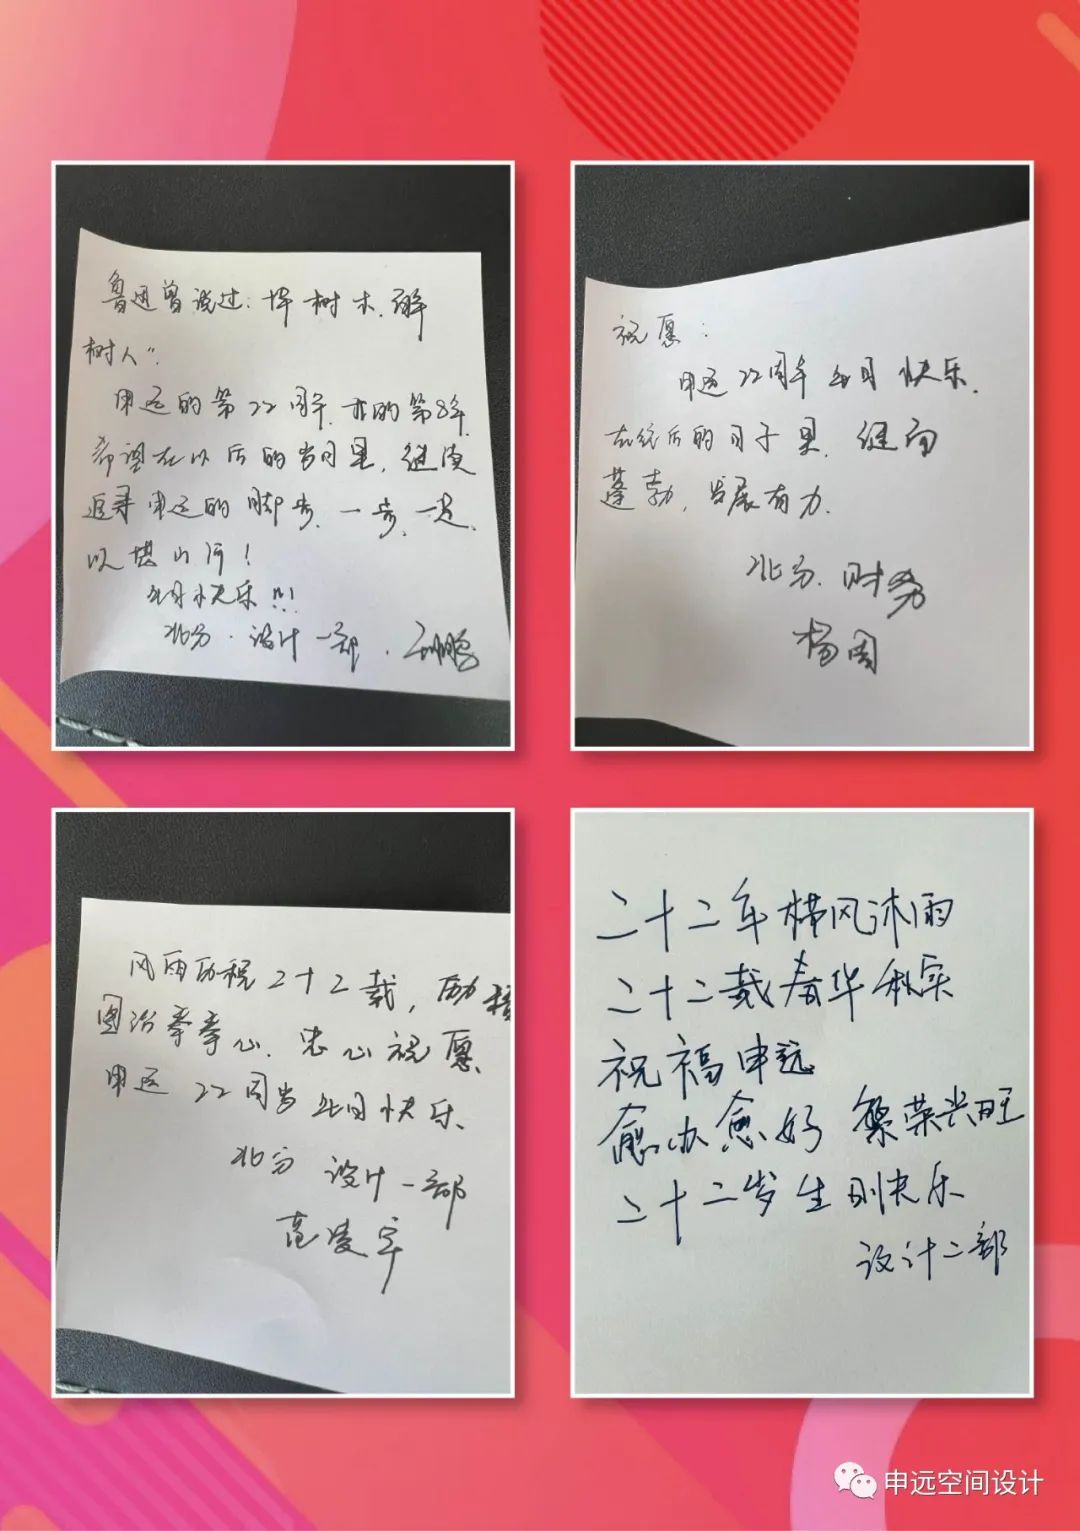 鲁迅曾说过: 树木.
树人".
申远的第22周年.亦的第8年
希望在以后的岁月里,继续
追寻申远的脚步,一步,一足.
以堪山河!
生日快乐!!!
北分.设计一部.孙鹏
祝愿:
申远22周年生日快乐.
在往后的日子里.继
蓬勃,发展有力.
北分.财务
杨周
风雨历程二十二载,励精
图治拳拳心.忠心祝愿
申远22周岁生日快乐.
北分 设计一部
范凌宇
二十二年栉风沐雨
二十二载春华秋实
祝福申远
愈办愈好 繁荣兴旺
二十二岁生日快乐
设计二部
申远空间设计